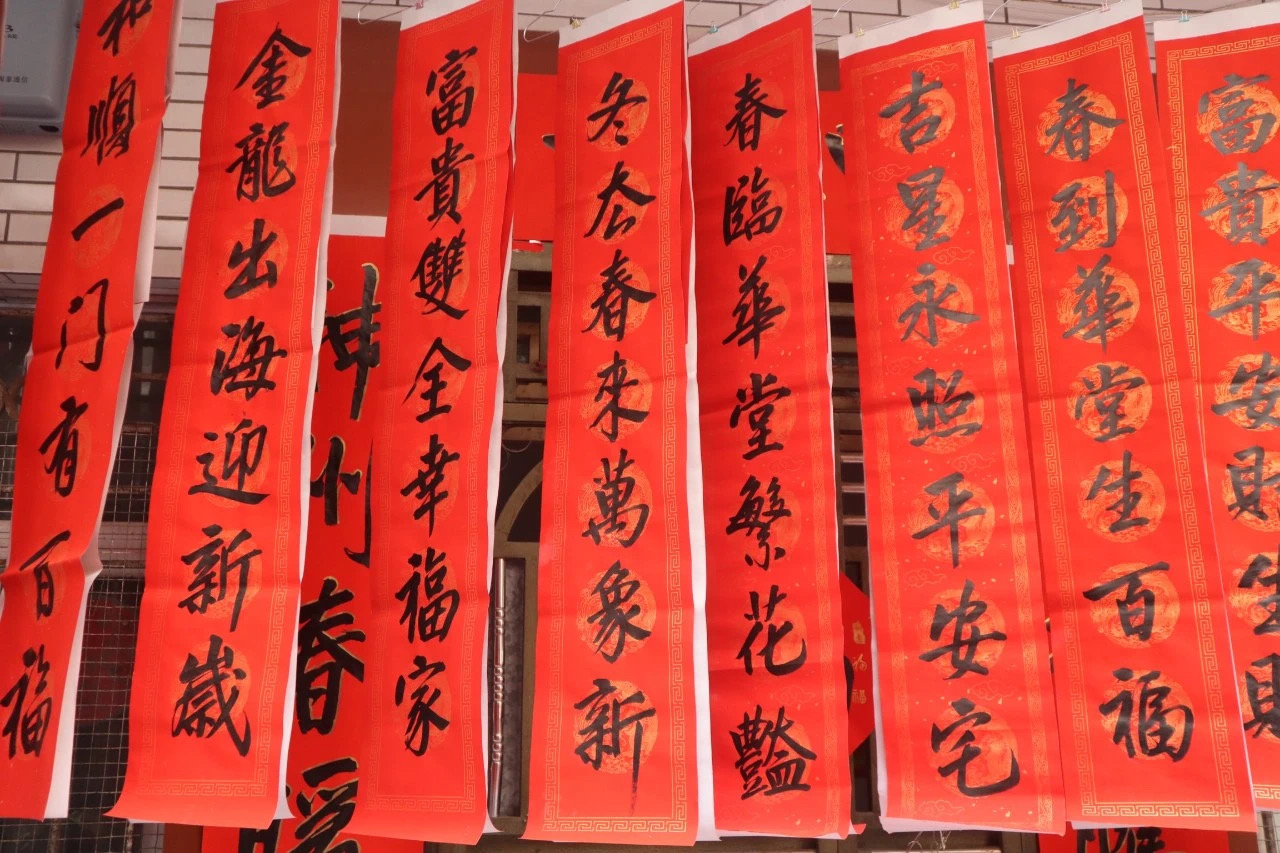 和順一门有百福
金龍出海迎新歲
神州春暖
富貴雙全幸福家
冬去春來萬象新
春臨華堂繁花豔
吉星永照平安宅
春到華堂生百福
富貴平安财生财